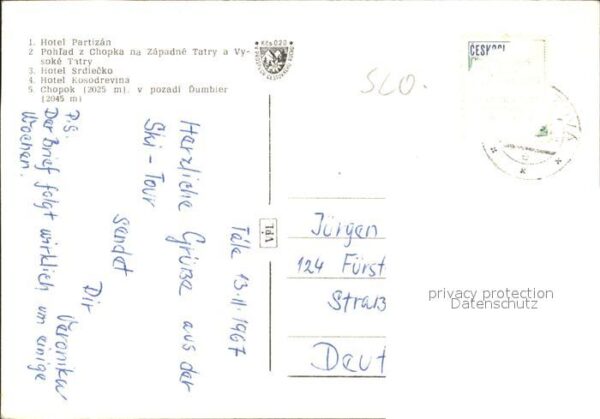 1. Hotel Partizán
2 Pohľad z Chopka na Západné Tatry a Vy-
soké Tatry
3. Hotel Srdiečko
4. Hotel Kosodrevina
5. Chopok (2025 m), v pozadí Ďumbier
(2045 m)
Kčs 0,20
ČESKOSL
SLO.
Tále 13.II.1967
Herzliche Grüße aus der
Ski-Tour
sendet
Dir
Veronika
P.S.
Der Brief folgt wirklich um einige
Wochen.
VpL
Jürgen
124 Fürst
Straß
Deut
privacy protection
Datenschutz